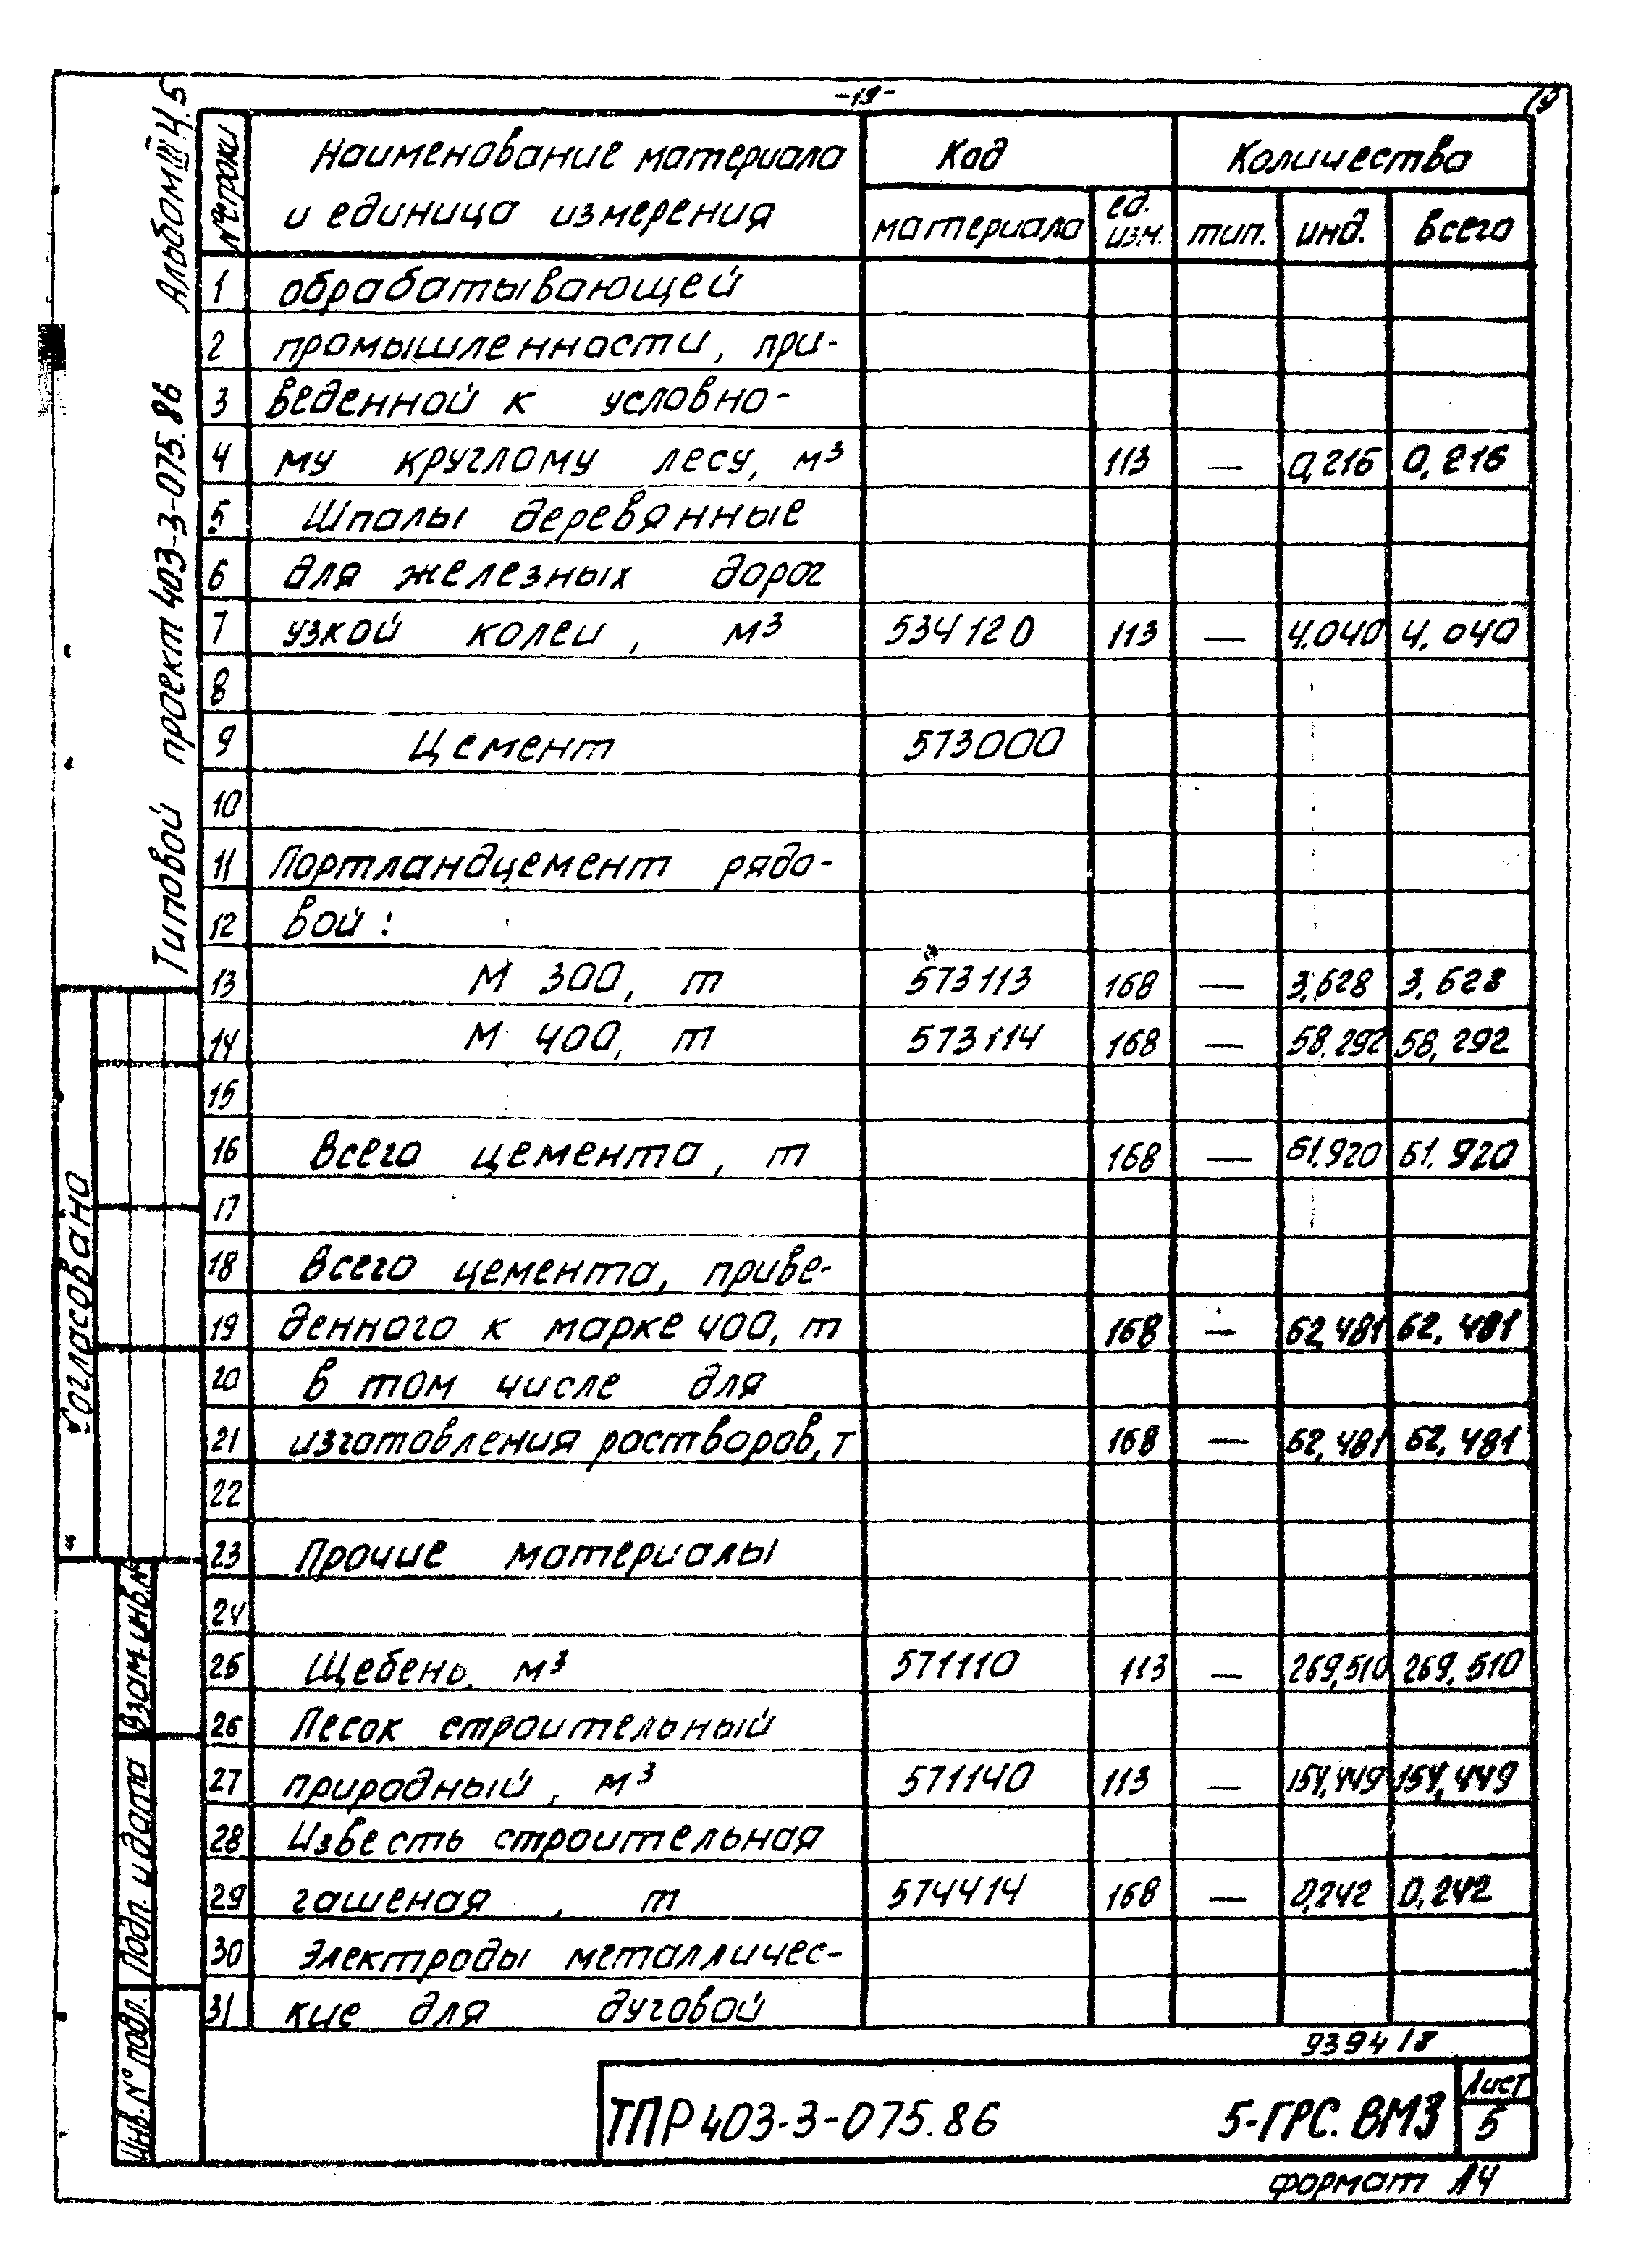 -19-
19
Альбом III ч.5
Типовой проект 403-3-075.86
№ строки
Наименование материала и единица измерения
Код
Количества
материала
ед. изм.
тип.
инд.
всего
1 обрабатывающей
2 промышленности, при-
3 веденной к условно-
4 му круглому лесу, м³ 113 — 0,216 0,216
5 Шпалы деревянные
6 для железных дорог
7 узкой колеи, м³ 534120 113 — 4.040 4.040
8
9 Цемент 573000
10
11 Портландцемент рядо-
12 вой:
13 М 300, т 573113 168 — 3,628 3,628
14 М 400, т 573114 168 — 58,292 58,292
15
16 Всего цемента, т 168 — 61,920 61.920
17
18 Всего цемента, приве-
19 денного к марке 400, т 168 — 62,481 62,481
20 в том числе для
21 изготовления растворов, т 168 — 62,481 62,481
22
23 Прочие материалы
24
25 Щебень, м³ 571110 113 — 269,510 269,510
26 Песок строительный
27 природный, м³ 571140 113 — 154,449 154,449
28 Известь строительная
29 гашеная, т 574414 168 — 0,242 0,242
30 Электроды металличес-
31 кие для дуговой
Согласовано
Взам. инв. №
Подп. и дата
Инв. № подл.
9394/8
ТПР 403-3-075.86
5-ГРС. ВМ3
Лист
5
формат А4